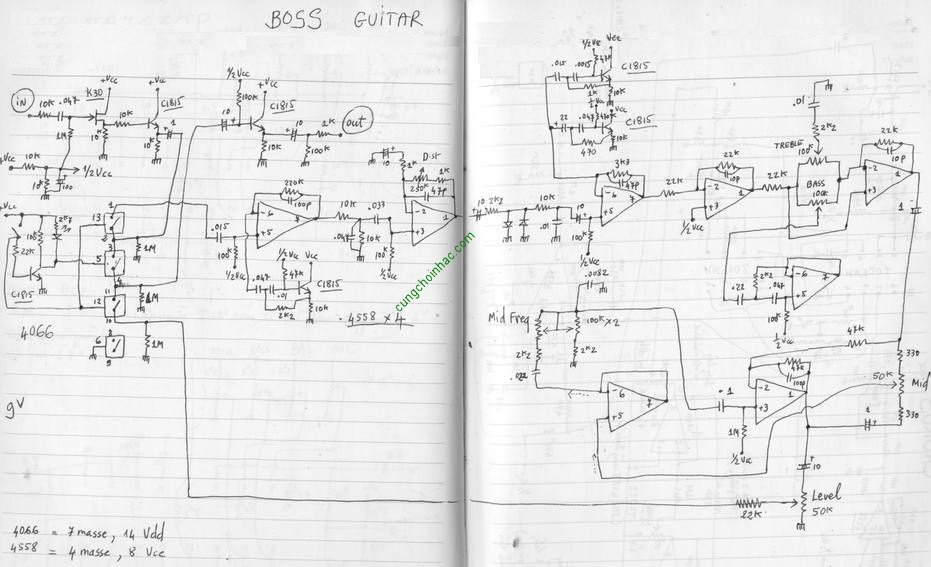 BOSS GUITAR
in
10K
.047
K30
+Vcc
1M
10K
10K
C1815
+Vcc
10K
1
1/2Vcc
100K
+Vcc
C1815
10
10K
10
1K
100K
out
+Vcc
10K
10K
100
1/2Vcc
+Vcc
22K
2K7
C1815
1
13
3
5
4
11
12
10
8
6
9
1M
1M
1M
4066
.015
100K
1/2Vcc
220K
100p
-6
+5
7
.047
.01
2K2
1/2Vcc
47K
Vcc
C1815
10K
10K
.047
10K
.037
100K
1/2Vcc
10
1K
Dist
250K
1K
47p
-2
+3
1
4558 x 4
cungchoinhac.com
9V
4066 = 7 masse, 14 Vdd
4558 = 4 masse, 8 Vcc
1/2Vcc
Vcc
.015
.0015
47K
C1815
1K
10K
1/2Vcc
Vcc
.22
.047
470K
C1815
10K
470
10
2K2
10K
.01
10
100K
1/2Vcc
3K3
47p
-6
+5
7
22K
22K
10p
-2
+3
1
1/2Vcc
22K
.01
2K2
TREBLE
100K
BASS
100K
22K
10p
-2
+3
1
1
.22
2K2
.047
100K
1/2Vcc
-6
+5
7
.0082
Mid Freq
100K x 2
2K2
2K2
.022
-6
+5
7
.1
1M
1/2Vcc
47K
47K
100p
-2
+3
1
330
50K
Mid
330
10
Level
50K
22K